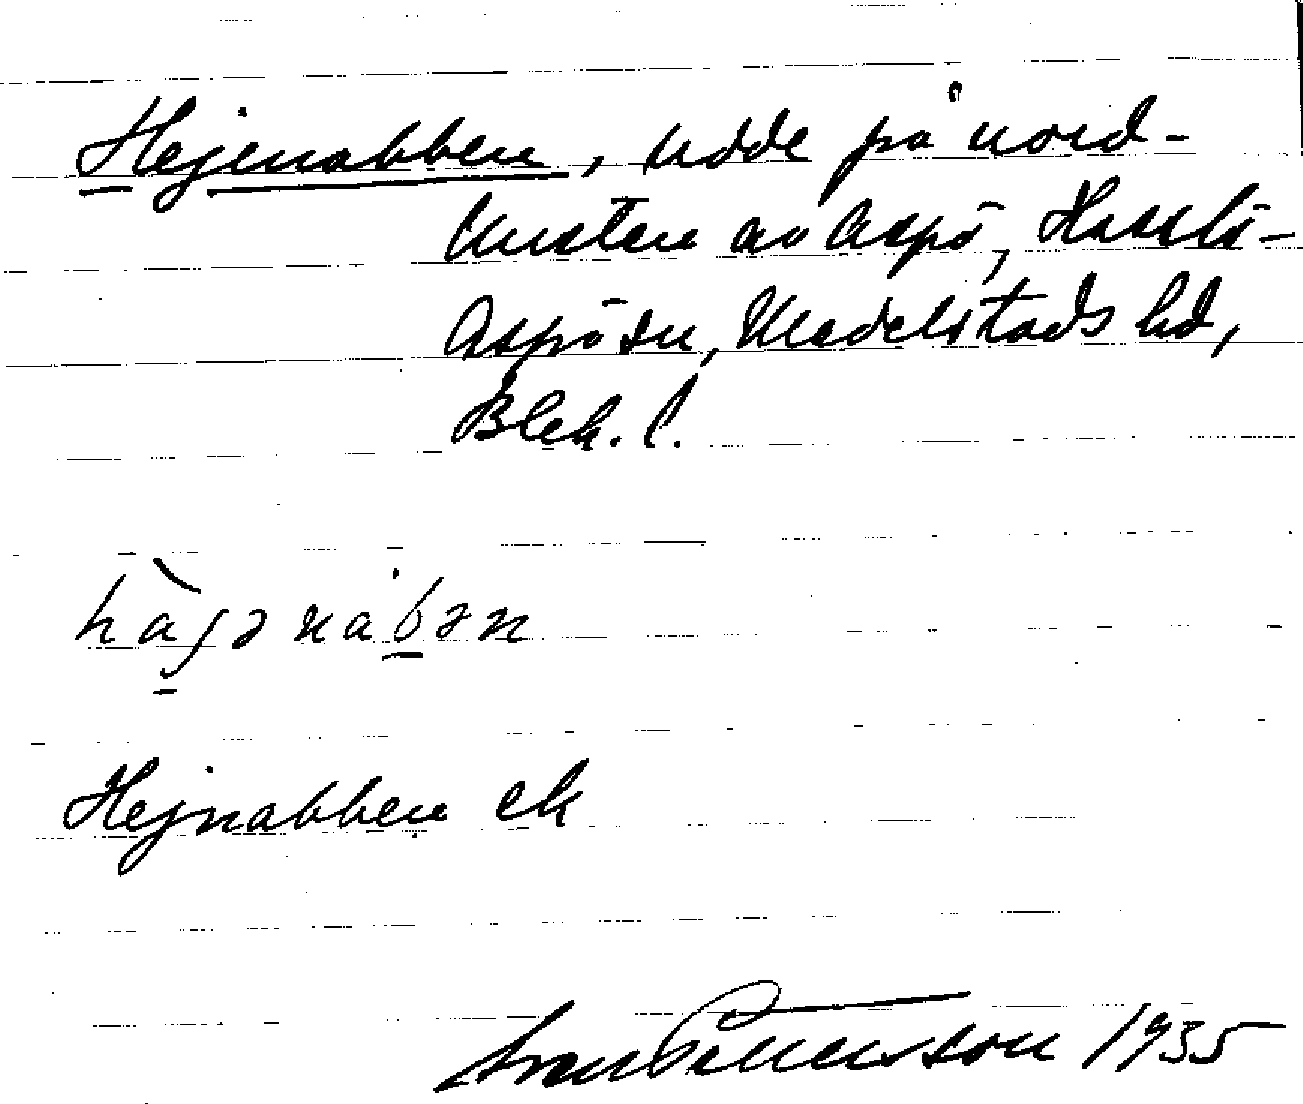 Hejenabben, udde på nord-
kusten av Aspö, Hasslö-
Aspö sn, Medelstads hd,
Blek. l.
hàjənabən
Hejnabben ek
Sven Pettersson 1935